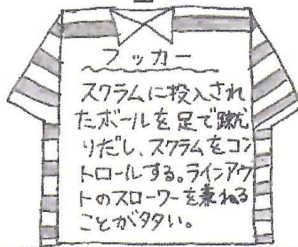 フッカー
スクラムに投入され
たボールを足で蹴
りだし、スクラムをコン
トロールする。ラインアウ
トのスローワーを兼ねる
ことが多い。